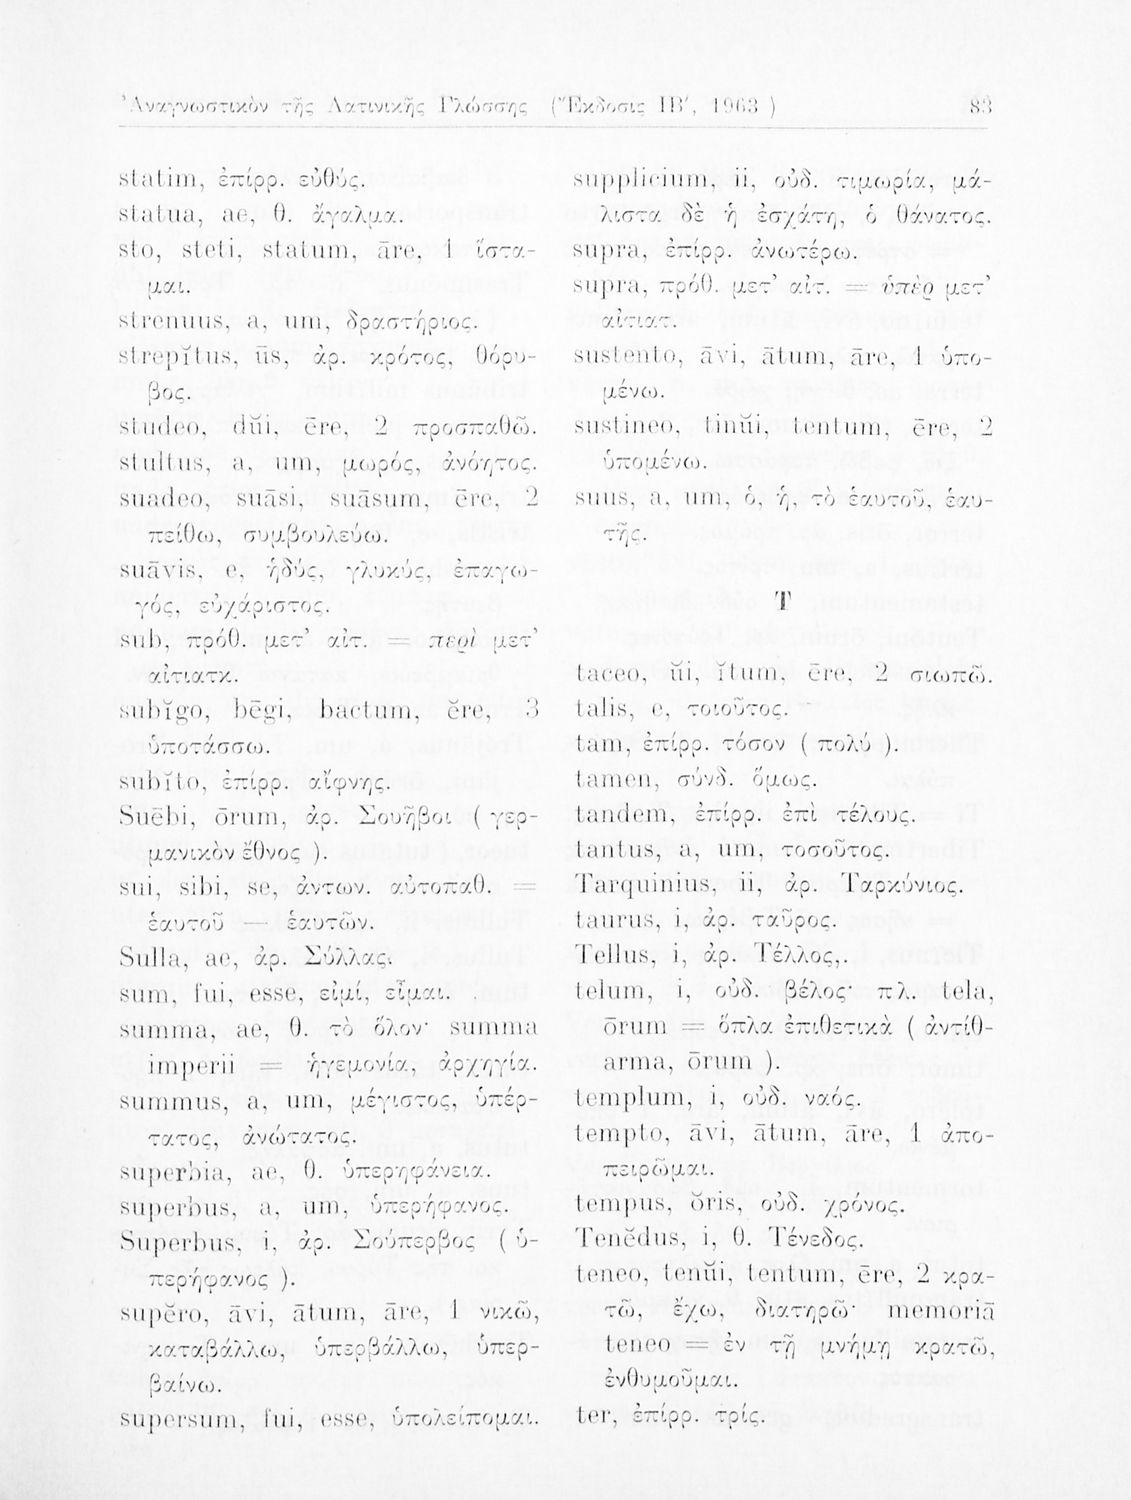 Ἀναγνωστικὸν τῆς Λατινικῆς Γλώσσης (Ἔκδοσις ΙΒ′, 1963 ) 83
statim, ἐπίρρ. εὐθύς.
statua, ae, θ. ἄγαλμα.
sto, steti, statum, āre, 1 ἵστα-
μαι.
strenuus, a, um, δραστήριος.
strepĭtus, ūs, ἀρ. κρότος, θόρυ-
βος.
studeo, dŭi, ēre, 2 προσπαθῶ.
stultus, a, um, μωρός, ἀνόητος.
suadeo, suāsi, suāsum, ēre, 2
πείθω, συμβουλεύω.
suāvis, e, ἡδύς, γλυκύς, ἐπαγω-
γός, εὐχάριστος.
sub, πρόθ. μετ’ αἰτ. = περὶ μετ’
αἰτιατκ.
subĭgo, bēgi, bactum, ĕre, 3
ὑποτάσσω.
subĭto, ἐπίρρ. αἴφνης.
Suēbi, ōrum, ἀρ. Σουῆβοι ( γερ-
μανικὸν ἔθνος ).
sui, sibi, se, ἀντων. αὐτοπαθ. =
ἑαυτοῦ — ἑαυτῶν.
Sulla, ae, ἀρ. Σύλλας.
sum, fui, esse, εἰμί, εἶμαι.
summa, ae, θ. τὸ ὅλον· summa
imperii = ἡγεμονία, ἀρχηγία.
summus, a, um, μέγιστος, ὑπέρ-
τατος, ἀνώτατος.
superbia, ae, θ. ὑπερηφάνεια.
superbus, a, um, ὑπερήφανος.
Superbus, i, ἀρ. Σούπερβος ( ὑ-
περήφανος ).
supĕro, āvi, ātum, āre, 1 νικῶ,
καταβάλλω, ὑπερβάλλω, ὑπερ-
βαίνω.
supersum, fui, esse, ὑπολείπομαι.
supplicium, ii, οὐδ. τιμωρία, μά-
λιστα δὲ ἡ ἐσχάτη, ὁ θάνατος.
supra, ἐπίρρ. ἀνωτέρω.
supra, πρόθ. μετ’ αἰτ. = ὑπὲρ μετ’
αἰτιατ.
sustento, āvi, ātum, āre, 1 ὑπο-
μένω.
sustineo, tinŭi, tentum, ēre, 2
ὑπομένω.
suus, a, um, ὁ, ἡ, τὸ ἑαυτοῦ, ἑαυ-
τῆς.
T
taceo, ŭi, ĭtum, ēre, 2 σιωπῶ.
talis, e, τοιοῦτος.
tam, ἐπίρρ. τόσον ( πολύ ).
tamen, σύνδ. ὅμως.
tandem, ἐπίρρ. ἐπὶ τέλους.
tantus, a, um, τοσοῦτος.
Tarquinius, ii, ἀρ. Ταρκύνιος.
taurus, i, ἀρ. ταῦρος.
Tellus, i, ἀρ. Τέλλος,.
telum, i, οὐδ. βέλος· πλ. tela,
ōrum = ὅπλα ἐπιθετικὰ ( ἀντίθ-
arma, ōrum ).
templum, i, οὐδ. ναός.
tempto, āvi, ātum, āre, 1 ἀπο-
πειρῶμαι.
tempus, ŏris, οὐδ. χρόνος.
Tenĕdus, i, θ. Τένεδος.
teneo, tenŭi, tentum, ēre, 2 κρα-
τῶ, ἔχω, διατηρῶ· memoriā
teneo = ἐν τῇ μνήμῃ κρατῶ,
ἐνθυμοῦμαι.
ter, ἐπίρρ. τρίς.